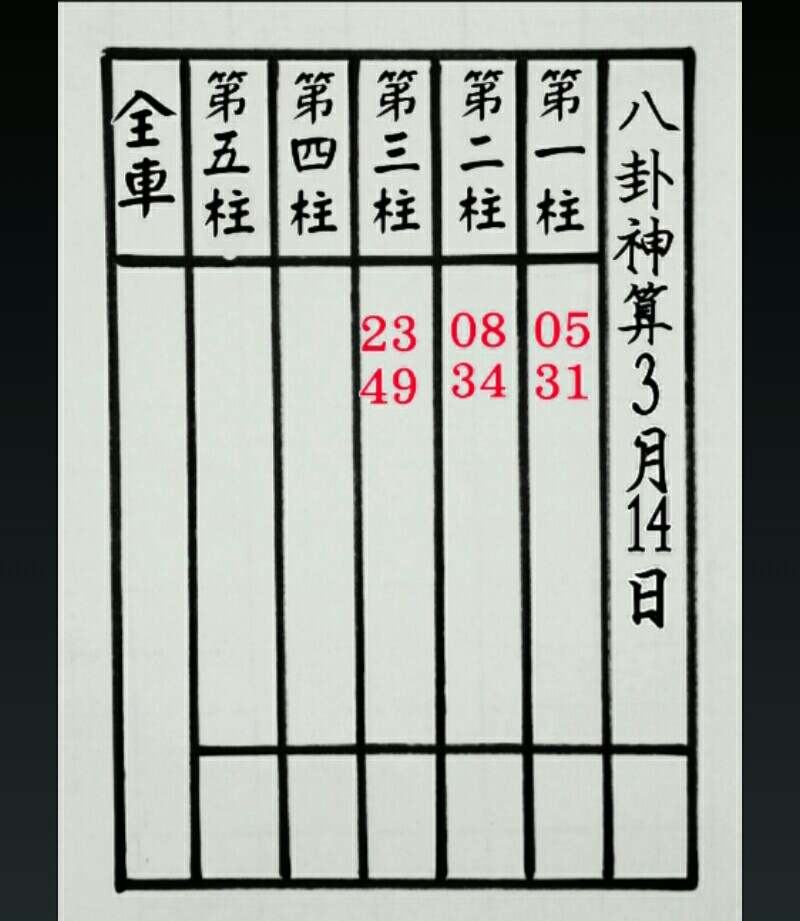 八卦神算3月14日
第一柱
05
31
第二柱
08
34
第三柱
23
49
第四柱
第五柱
全車